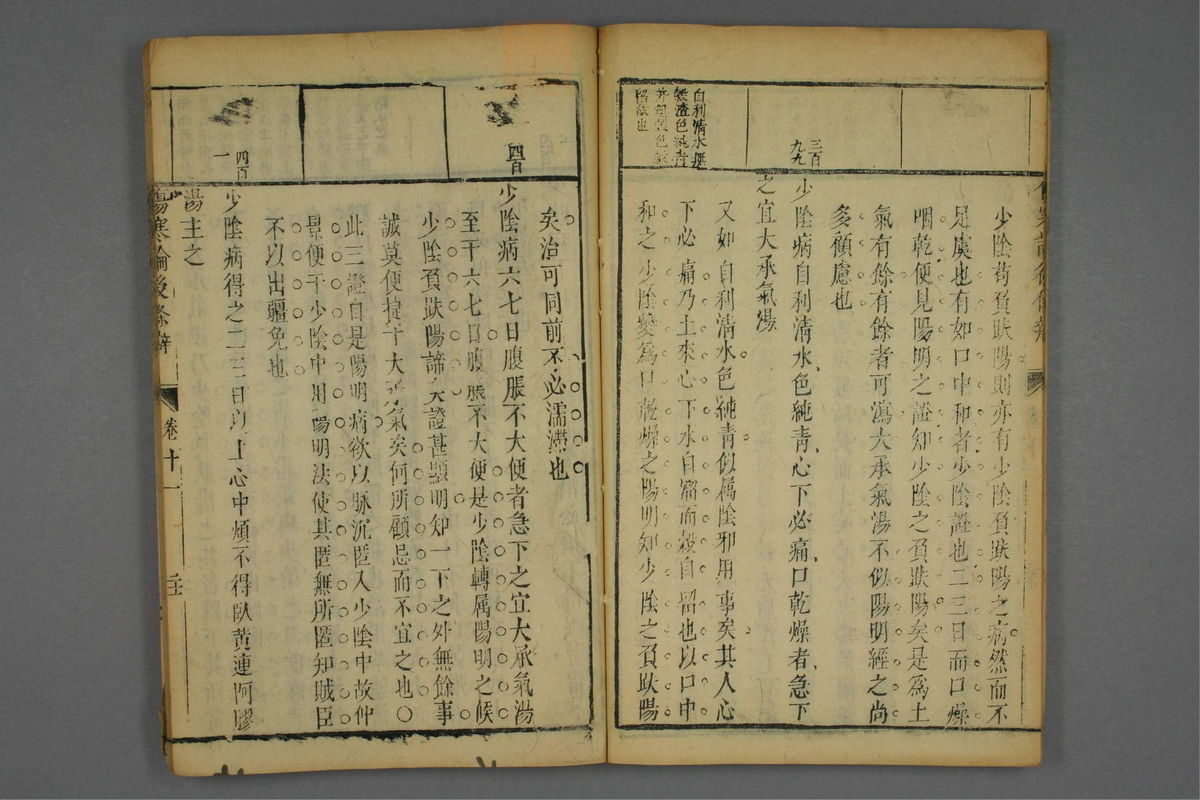 少陰苟負趺陽則亦有少陰負趺陽之病然而不
足虞也有如口中和者少陰證也二三日而口燥
咽乾便見陽明之證知少陰之負趺陽矣是爲土
氣有餘有餘者可瀉大承氣湯不似陽明經之尚
多顧慮也
三百
九九
少陰病自利清水色純青心下必痛口乾燥者急下
之宜大承氣湯
自利清水無
渣色純青
色
也
又如自利清水色純青似属陰邪用事矣其人心
下必痛乃土來心下水自溜而穀自留也以口中
和之少陰變爲口乾燥之陽明知少陰之負趺陽
矣治可同前不必濡滯也
四百
少陰病六七日腹脹不大便者急下之宜大承氣湯
至于六七日腹脹不大便是少陰轉属陽明之候
少陰負趺陽諦矣證甚顯明知一下之外無餘事
誠莫便捷于大承氣矣何所顧忌而不宜之也○
此三證自是陽明病欲以脉沉匿入少陰中故仲
景便于少陰中用陽明法使其匿無所匿知賊臣
不以出疆免也
四百
一
少陰病得之二三日以上心中煩不得臥黄連阿膠
湯主之
傷寒論後條辨
卷十一